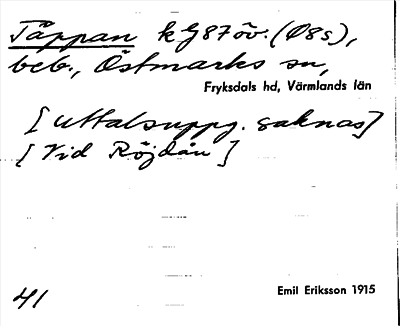 Täppan k G87 öv. (Ø8s),
beb., Östmarks sn,
Fryksdals hd, Värmlands län
[Uttalsuppg. saknas]
[Vid Röjdån]
41 Emil Eriksson 1915